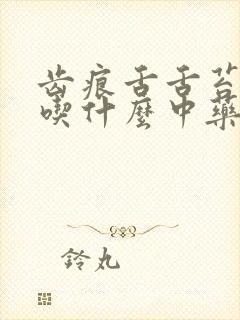 齿痕舌舌苔
喫什麽中藥
鈴丸